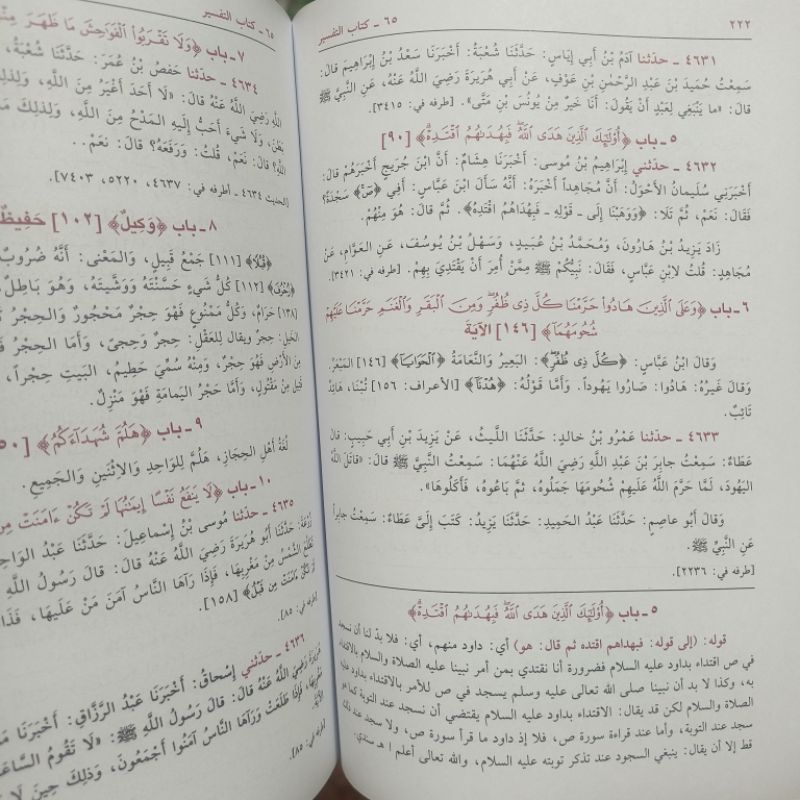 ٢٢٢
٦٥ ـ كتاب التفسير
٤٦٣١ ـ حدّثنا آدَمُ بْنُ أَبِي إِيَاسٍ: حَدَّثَنَا شُعْبَةُ: أَخْبَرَنَا سَعْدُ بْنُ إِبْرَاهِيمَ قالَ:
سَمِعْتُ حُمَيدَ بْنَ عَبْدِ الرَّحْمٰنِ بْنِ عَوْفٍ، عَنْ أَبِي هُرَيْرَةَ رَضِيَ اللَّهُ عَنْهُ، عَنِ النَّبِيِّ ﷺ
قالَ: «ما يَنْبَغِي لِعَبْدٍ أَنْ يَقُولَ: أَنَا خَيرٌ مِنْ يُونُسَ بْنِ مَتَّى». [طرفه في: ٣٤١٥].
٥ ـ باب ﴿أُوْلَٰٓئِكَ ٱلَّذِينَ هَدَى ٱللَّهُۖ فَبِهُدَىٰهُمُ ٱقْتَدِهْۗ﴾ [٩٠]
٤٦٣٢ ـ حدّثني إِبْرَاهِيمُ بْنُ مُوسى: أَخْبَرَنَا هِشَامٌ: أَنَّ ابْنَ جُرَيجٍ أَخْبَرَهُمْ قالَ:
أَخْبَرَنِي سُلَيمانُ الأَحْوَلُ: أَنَّ مُجَاهِداً أَخْبَرَهُ: أَنَّهُ سَأَلَ ابْنَ عَبَّاسٍ: أَفِي ﴿صٓ﴾ سَجْدَةٌ؟
فَقَالَ: نَعَمْ، ثُمَّ تَلَا: ﴿وَوَهَبْنَا إِلَى ـ قَوْلِهِ ـ فَبِهُدَاهُمُ اقْتَدِهْ﴾. ثُمَّ قالَ: هُوَ مِنْهُمْ.
زَادَ يَزِيدُ بْنُ هَارُونَ، وَمُحَمَّدُ بْنُ عُبَيدٍ، وَسَهْلُ بْنُ يُوسُفَ، عَنِ العَوَّامِ، عَنْ
مُجَاهِدٍ: قُلتُ لِابْنِ عَبَّاسٍ، فَقَالَ: نَبِيُّكُمْ ﷺ مِمَّنْ أُمِرَ أَنْ يَقْتَدِيَ بِهِمْ. [طرفه في: ٣٤٢١].
٦ ـ باب ﴿وَعَلَى ٱلَّذِينَ هَادُوا۟ حَرَّمْنَا كُلَّ ذِى ظُفُرٍۖ وَمِنَ ٱلْبَقَرِ وَٱلْغَنَمِ حَرَّمْنَا عَلَيْهِمْ
شُحُومَهُمَآ﴾ [١٤٦] الآيَةَ
وَقالَ ابْنُ عَبَّاسٍ: ﴿كُلَّ ذِى ظُفُرٍۖ﴾: البَعِيرُ وَالنَّعَامَةُ ﴿ٱلْحَوَايَآ﴾ [١٤٦] المَبْعَرُ.
وَقالَ غَيرُهُ: هَادُوا: صَارُوا يَهُوداً. وَأَمَّا قَوْلُهُ: ﴿هُدْنَآ﴾ [الأعراف: ١٥٦] تُبْنَا، هَائِدٌ
تَائِبٌ.
٤٦٣٣ ـ حدّثنا عَمْرُو بْنُ خالِدٍ: حَدَّثَنَا اللَّيثُ، عَنْ يَزِيدَ بْنِ أَبِي حَبِيبٍ: قالَ
عَطَاءٌ: سَمِعْتُ جابِرَ بْنَ عَبْدِ اللَّهِ رَضِيَ اللَّهُ عَنْهُمَا: سَمِعْتُ النَّبِيَّ ﷺ قالَ: «قاتَلَ اللَّهُ
اليَهُودَ، لَمَّا حَرَّمَ اللَّهُ عَلَيهِمْ شُحُومَهَا جَمَلُوهُ، ثُمَّ بَاعُوهُ، فَأَكَلُوهَا».
وَقالَ أَبُو عاصِمٍ: حَدَّثَنَا عَبْدُ الحَمِيدِ: حَدَّثَنَا يَزِيدُ: كَتَبَ إِلَيَّ عَطَاءٌ: سَمِعْتُ جابِراً
عَنِ النَّبِيِّ ﷺ.
[طرفه في: ٢٢٣٦].
٥ ـ باب ﴿أُوْلَٰٓئِكَ ٱلَّذِينَ هَدَى ٱللَّهُۖ فَبِهُدَىٰهُمُ ٱقْتَدِهْۗ﴾
قوله: (إلى قوله: فبهداهم اقتده ثم قال: هو) أي: داود منهم، أي: فلا بدّ لنا أن نسجد
في ص اقتداء بداود عليه السلام فضرورة أنا نقتدي بمن أمر نبينا عليه الصلاة والسلام بالاقتداء
به، وكذا لا بد أن نبينا صلى الله تعالى عليه وسلم يسجد في ص للأمر بالاقتداء بداود عليه
الصلاة والسلام لكن قد يقال: الاقتداء بداود عليه السلام يقتضي أن نسجد عند التوبة كما هو
سجد عند التوبة، وأما عند قراءة سورة ص، فلا إذ داود ما قرأ سورة ص، ولا سجد عند ذلك
قط إلا أن يقال: ينبغي السجود عند تذكر توبته عليه السلام، والله تعالى أعلم اهـ سندي.
٦٥ ـ كتاب التفسير
٧ ـ باب ﴿وَلَا تَقْرَبُوا۟ ٱلْفَوَٰحِشَ مَا ظَهَرَ مِنْهَا
٤٦٣٤ ـ حدّثنا حَفصُ بْنُ عُمَرَ: حَدَّثَنَا شُعْبَةُ،
اللَّهِ رَضِيَ اللَّهُ عَنْهُ قالَ: «لَا أَحَدَ أَغْيَرُ مِنَ اللَّهِ، وَلِذلِكَ
بَطَنَ، وَلَا شَيءَ أَحَبُّ إِلَيهِ المَدْحُ مِنَ اللَّهِ، وَلِذلِكَ مَدَحَ
اللَّهِ؟ قالَ: نَعَمْ، قُلتُ: وَرَفَعَهُ؟ قالَ: نَعَمْ.
[الحديث ٤٦٣٤ ـ أطرافه في: ٤٦٣٧، ٥٢٢٠، ٧٤٠٣].
٨ ـ باب ﴿وَكِيلٌ﴾ [١٠٢] حَفِيظٌ
﴿قُبُلًا﴾ [١١١] جَمْعُ قَبِيلٍ، وَالمَعْنى: أَنَّهُ ضُرُوبٌ
[١١٢] كُلُّ شَيءٍ حَسَّنْتَهُ وَوَشَّيتَهُ، وَهُوَ بَاطِلٌ
[١٣٨] حَرَامٌ، وَكُلُّ مَمْنُوعٍ فَهوَ حِجْرٌ مَحْجُورٌ وَالحِجْرُ
الخَيلِ: حِجْرٌ ويقال لِلعَقْلِ: حِجْرٌ وَحِجىً، وَأَمَّا الحِجْرُ
مِنَ الأَرْضِ فَهُوَ حِجْرٌ، وَمِنْهُ سُمِّيَ حَطِيمُ، البَيتِ حِجْراً،
قَتِيلٍ مِنْ مَقْتُولٍ، وَأَمَّا حَجْرُ اليَمامَةِ فَهْوَ مَنْزِلٌ.
٩ ـ باب ﴿هَلُمَّ شُهَدَآءَكُمُ﴾
لُغَةُ أَهْلِ الحِجَازِ، هَلُمَّ لِلوَاحِدِ وَالِاثْنَينِ وَالجَمِيعِ.
١٠ ـ باب ﴿لَا يَنفَعُ نَفْسًا إِيمَٰنُهَا لَمْ تَكُنْ ءَامَنَتْ مِن
٤٦٣٥ ـ حدّثنا مُوسى بْنُ إِسْماعِيلَ: حَدَّثَنَا عَبْدُ الوَاحِدِ
زُرْعَةَ: حَدَّثَنَا أَبُو هُرَيْرَةَ رَضِيَ اللَّهُ عَنْهُ قالَ: قالَ رَسُولُ اللَّهِ
تَطْلُعَ الشَّمْسُ مِنْ مَغْرِبِهَا، فَإِذَا رَآهَا النَّاسُ آمَنَ مَنْ عَلَيهَا،
لَمْ تَكُنْ ءَامَنَتْ مِن قَبْلُ﴾ [١٥٨].
[طرفه في: ٨٥].
٤٦٣٦ ـ حدّثني إِسْحاقُ: أَخْبَرَنَا عَبْدُ الرَّزَّاقِ: أَخْبَرَنَا
هُرَيْرَةَ رَضِيَ اللَّهُ عَنْهُ قالَ: قالَ رَسُولُ اللَّهِ ﷺ: «لَا تَقُومُ
فَإِذَا طَلَعَتْ وَرَآهَا النَّاسُ آمَنُوا أَجْمَعُونَ، وَذلِكَ حِينَ لَا
الآيَةَ.
[طرفه في: ٨٥].